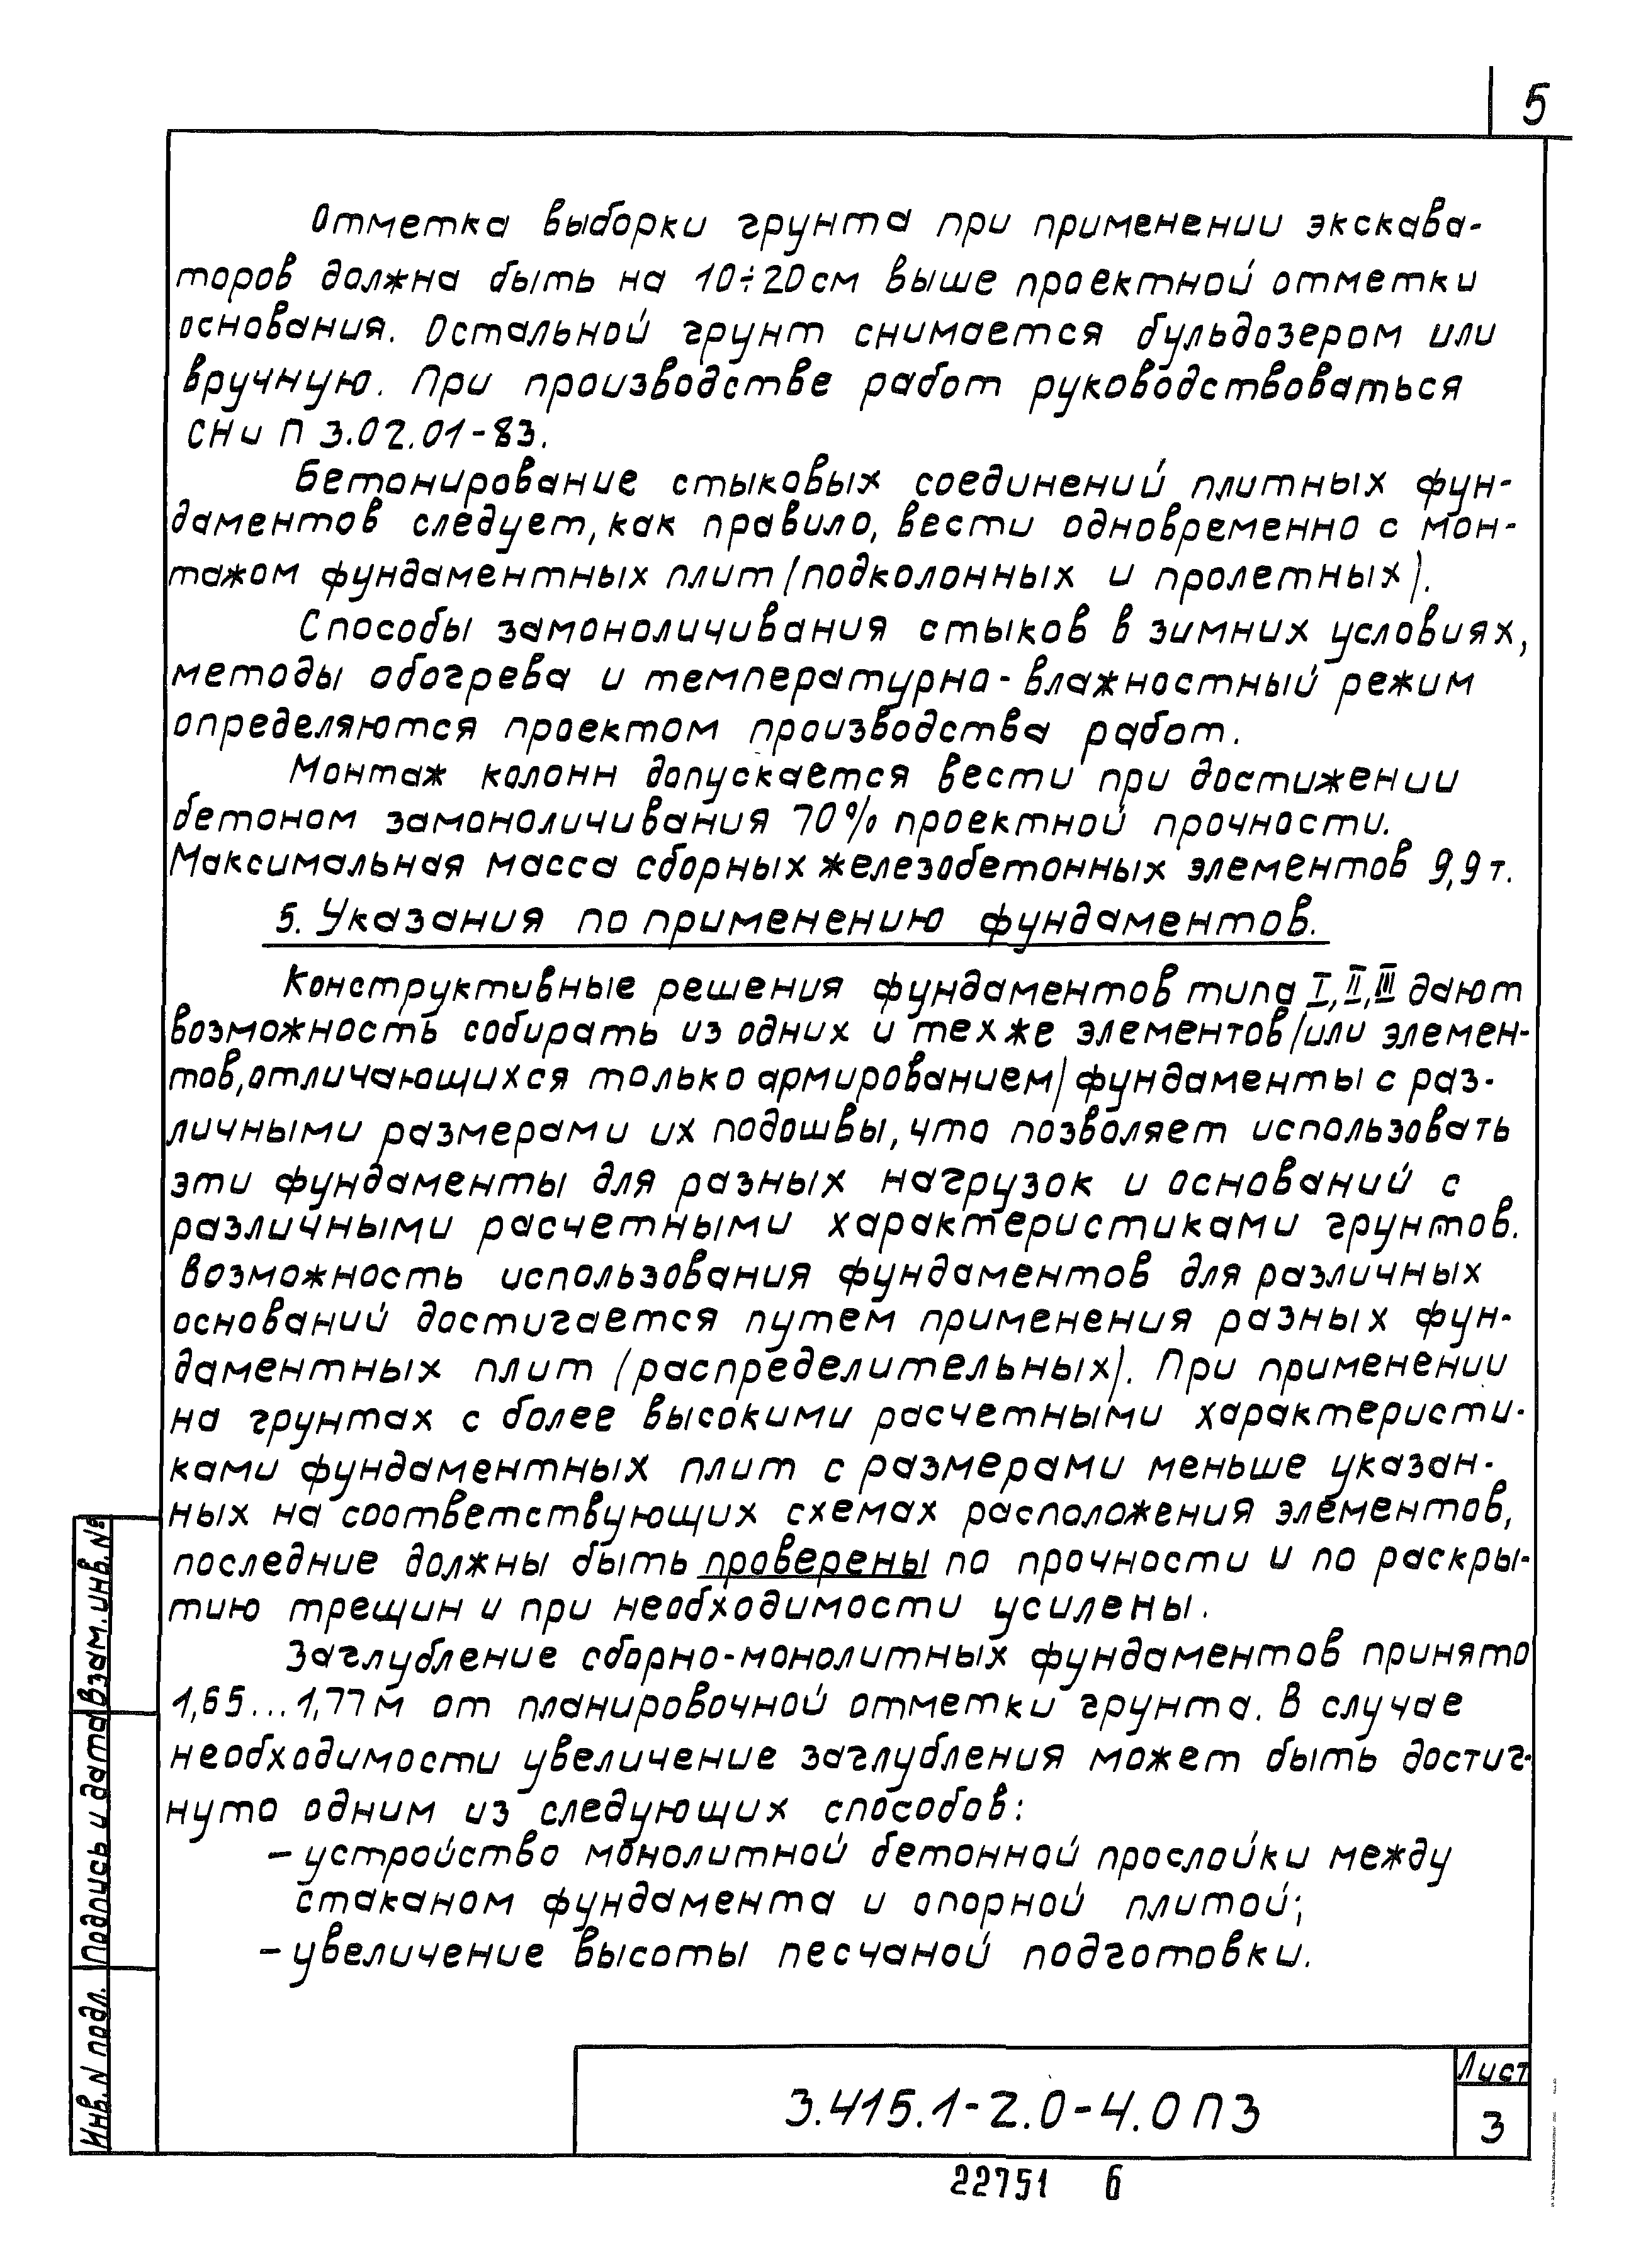 5
Отметка выборки грунта при применении экскава-
торов должна быть на 10÷20см выше проектной отметки
основания. Остальной грунт снимается бульдозером или
вручную. При производстве работ руководствоваться
СНиП 3.02.01-83.
Бетонирование стыковых соединений плитных фун-
даментов следует, как правило, вести одновременно с мон-
тажом фундаментных плит (подколонных и пролетных).
Способы замоноличивания стыков в зимних условиях,
методы обогрева и температурно-влажностный режим
определяются проектом производства работ.
Монтаж колонн допускается вести при достижении
бетоном замоноличивания 70% проектной прочности.
Максимальная масса сборных железобетонных элементов 9,9 т.
5. Указания по применению фундаментов.
Конструктивные решения фундаментов типа I, II, III дают
возможность собирать из одних и тех же элементов (или элемен-
тов, отличающихся только армированием) фундаменты с раз-
личными размерами их подошвы, что позволяет использовать
эти фундаменты для разных нагрузок и оснований с
различными расчетными характеристиками грунтов.
Возможность использования фундаментов для различных
оснований достигается путем применения разных фун-
даментных плит (распределительных). При применении
на грунтах с более высокими расчетными характеристи-
ками фундаментных плит с размерами меньше указан-
ных на соответствующих схемах расположения элементов,
последние должны быть проверены по прочности и по раскры-
тию трещин и при необходимости усилены.
Заглубление сборно-монолитных фундаментов принято
1,65...1,77м от планировочной отметки грунта. В случае
необходимости увеличение заглубления может быть достиг-
нуто одним из следующих способов:
- устройство монолитной бетонной прослойки между
стаканом фундамента и опорной плитой;
- увеличение высоты песчаной подготовки.
Взам. инв. №
Подпись и дата
Инв. N подл.
3.415.1-2.0-4.0 ПЗ
Лист
3
22751 6